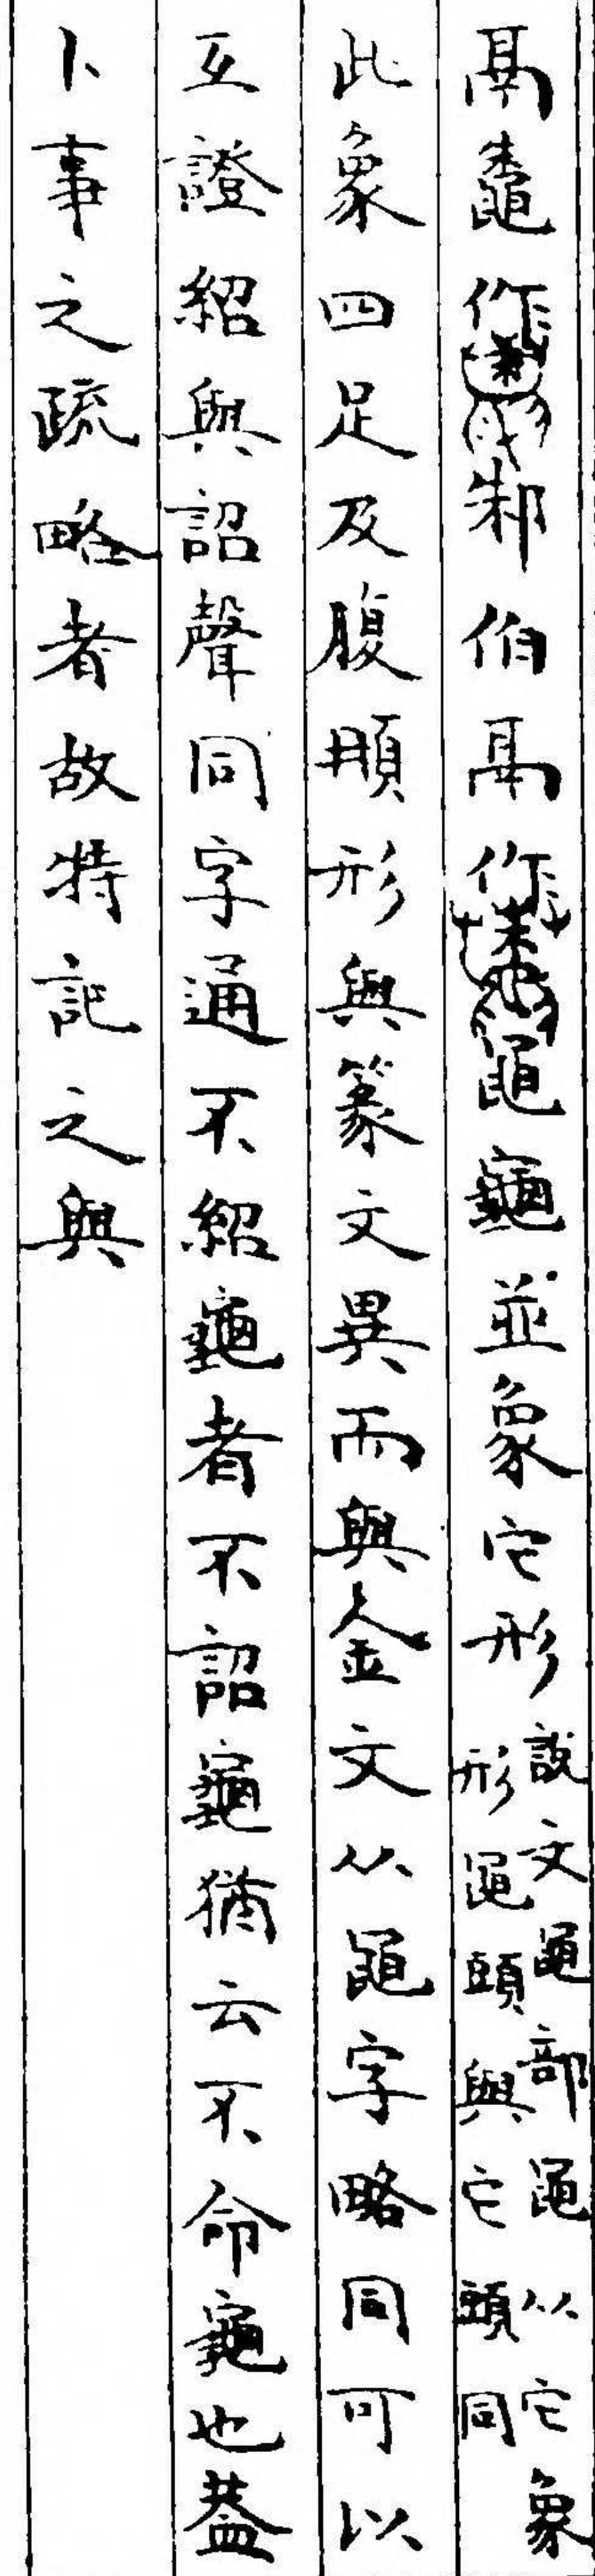 鬲鼄作邾伯鬲作黽龜並象它形
說文黽部黽从它象
形黽頭與它頭同
此象四足及腹形與篆文異而與金文从黽字略同可以
互證紹與詔聲同字通不紹龜者不詔龜猶云不命龜也葢
卜事之疏略者故特記之與